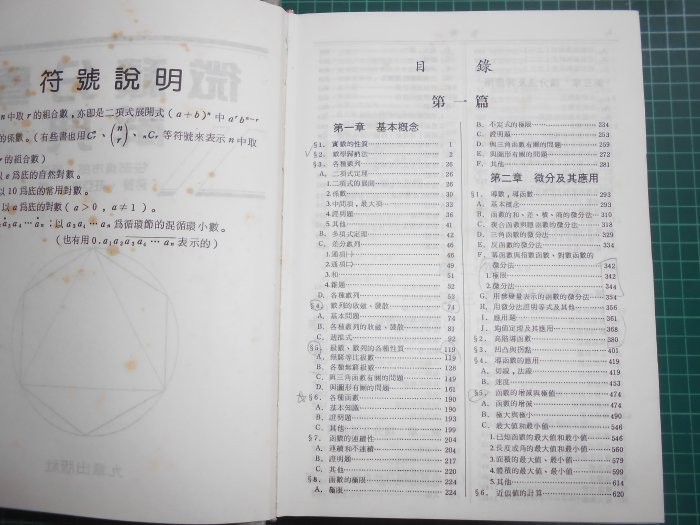 符號說明
n中取r的組合數,亦即是二項式展開式(a+b)ⁿ中aʳbⁿ⁻ʳ
的係數。(有些書也用Cⁿᵣ、(n r)、ₙCᵣ等符號來表示n中取
r的組合數)
以e為底的自然對數。
以10為底的常用對數。
以a為底的對數(a>0,a≠1)。
:以a₃a₄…aₙ為循環節的混循環小數。
(也有用0.a₁a₂a₃a₄…aₙ表示的)
九章出版社
目 錄
第一篇
第一章 基本概念
§1. 實數的性質 1
§2. 數學歸納法 2
§3. 各種數列 26
A. 二項式定理 26
1.二項式的展開 26
2.係數 30
3.中間項,最大項 33
4.證明題 36
5.其他 41
B. 多項式定理 42
C. 差分數列 46
1.通項㈠ 46
2.通項㈡ 49
3.和 51
4.難題 52
D. 各種數列 53
§4. 數列的收斂、發散 74
A. 基本問題 74
B. 各種數列的收斂、發散 81
C. 遞推式 92
§5. 級數、數列的各種性質 119
A. 無窮等比級數 119
B. 各種無窮級數 128
C. 與三角函數有關的問題 149
D. 與圖形有關的問題 161
§6. 各種函數 190
A. 基本知識 190
B. 證明題 193
C. 其他 199
§7. 函數的連續性 204
A. 連續和不連續 204
B. 證明題 217
C. 其他 220
§8. 函數的極限 224
A. 極限 224
B. 不定式的極限 234
C. 證明題 253
D. 與三角函數有關的問題 259
E. 與圖形有關的問題 272
F. 其他 281
第二章 微分及其應用
§1. 導數,導函數 293
A. 基本概念 293
B. 函數的和、差、積、商的微分法 310
C. 複合函數與隱函數的微分法 318
D. 三角函數的微分法 329
E. 反函數的微分法 334
F. 冪函數與指數函數、對數函數的
微分法 342
1.極限 342
2.微分法 344
G. 用參變量表示的函數的微分法 354
H. 用微分法證明等式及其他 356
I. 應用題 361
J. 均值定理及其應用 368
§2. 高階導函數 380
§3. 凹凸與拐點 401
§4. 導函數的應用 419
A. 切線,法線 419
B. 速度 453
§5. 函數的增減與極值 474
A. 函數的增減 474
B. 極大與極小 490
C. 最大值和最小值 546
1.已知函數的最大值和最小值 546
2.長度或角的最大值和最小值 560
3.面積的最大值、最小值 579
4.體積的最大值、最小值 599
5.其他 614
§6. 近似值的計算 620